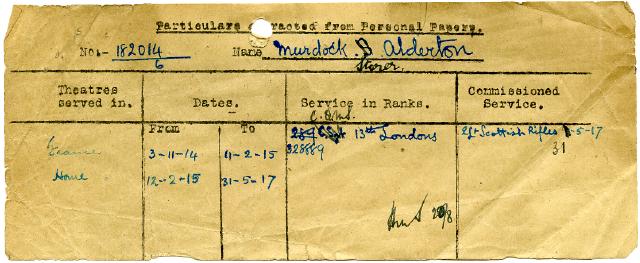 Particulars extracted from Personal Papers.
No:- 182014/6 Name Murdock S. Alderton
Storer.
Theatres served in. Dates. Service in Ranks. Commissioned Service.
From To C.Q.M.S.
289 13th Londons 2/Lt Scottish Rifles -5-17
France 3-11-14 11-2-15 328889 31
Home 12-2-15 31-5-17